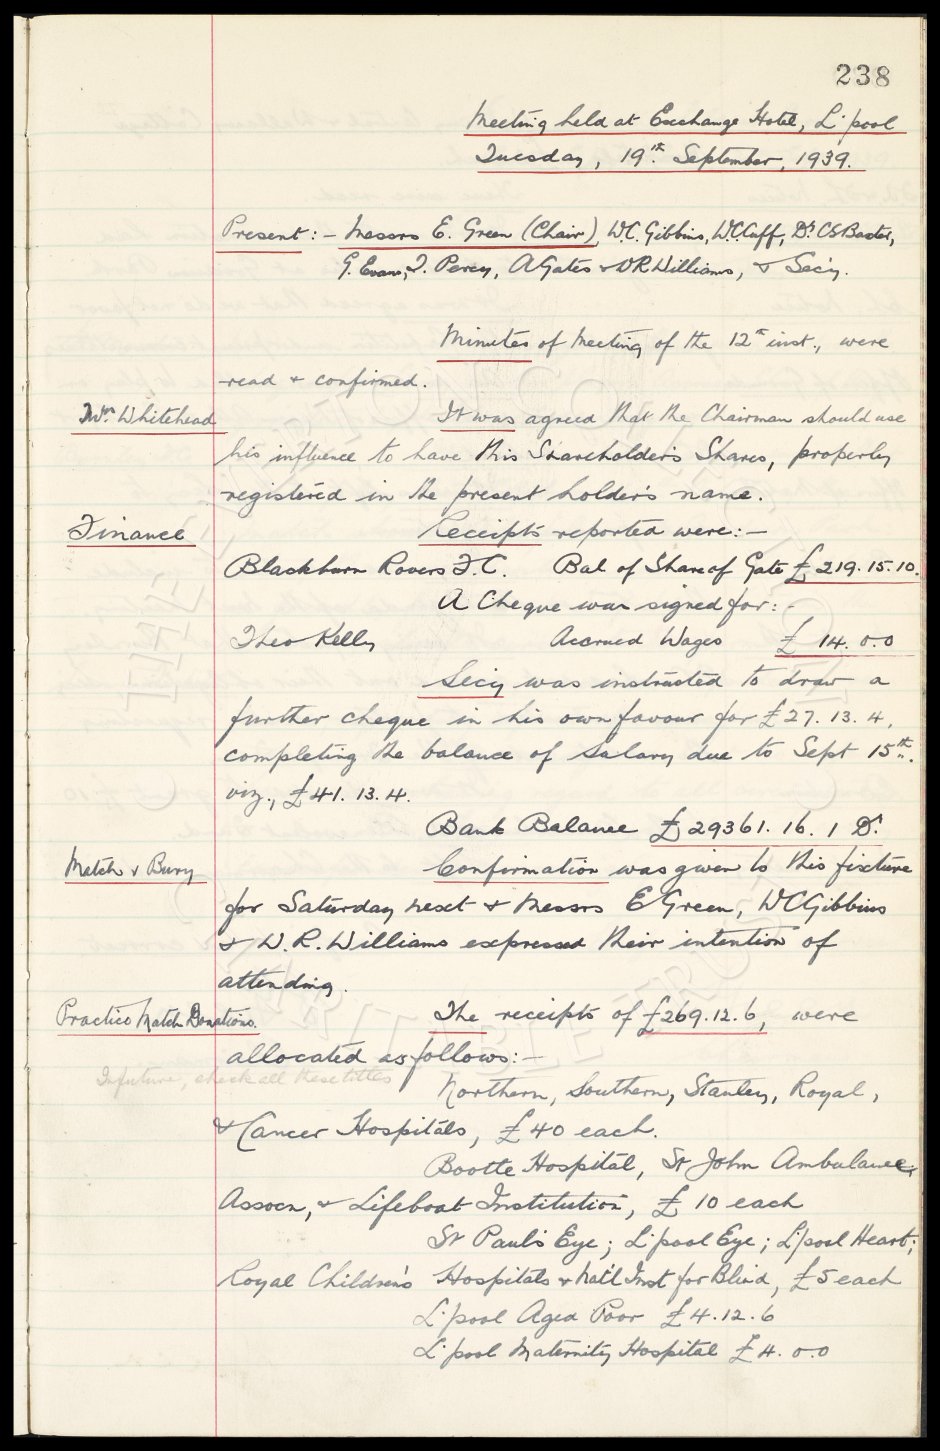 238
Meeting held at Exchange Hotel, L'pool
Tuesday, 19th September, 1939.
Present:- Messrs E. Green (Chair), W.C. Gibbins, W.C. Cuff, Dr CS Baxter,
G. Evans, T. Percy, A Gates & W R Williams, & Sec'y.
Minutes of Meeting of the 12th inst., were
read & confirmed.
Whitehead
It was agreed that the Chairman should use
his influence to have this Shareholder's Shares, properly
registered in the present holder's name.
Finance
Receipts reported were:-
Blackburn Rovers F.C. Bal of Share of Gate £219.15.10.
A Cheque was signed for:-
Theo Kelly Accrued Wages £ 14.0.0
Secy was instructed to draw a
further cheque in his own favour for £27.13.4,
completing the balance of salary due to Sept 15th.
viz., £41.13.4.
Bank Balance £29361.16.1 Dr
Match v Bury
Confirmation was given to this fixture
for Saturday next & Messrs E Green, W C Gibbins
& W.R. Williams expressed their intention of
attending.
Practice Match Donations.
The receipts of £269.12.6, were
allocated as follows:-
In future, check all these titles
Northern, Southern, Stanley, Royal,
& Cancer Hospitals, £40 each.
Bootle Hospital, St John Ambulance
Assocn, & Lifeboat Institution, £10 each
St Paul's Eye; L'pool Eye; L'pool Heart;
Royal Children's Hospitals & Nat'l Inst for Blind, £5 each
L'pool Aged Poor £4.12.6
L'pool Maternity Hospital £4.0.0